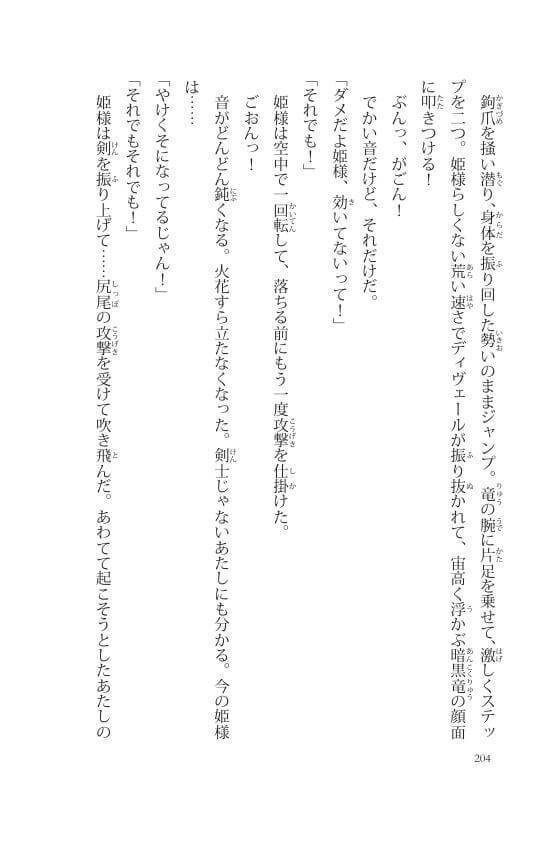 鉤爪を掻い潜り、身体を振り回した勢いのままジャンプ。竜の腕に片足を乗せて、激しくステッ
プを二つ。姫様らしくない荒い速さでディヴェールが振り抜かれて、宙高く浮かぶ暗黒竜の顔面
に叩きつける！
ぶんっ、がごん！
でかい音だけど、それだけだ。
「ダメだよ姫様、効いてないって！」
「それでも！」
姫様は空中で一回転して、落ちる前にもう一度攻撃を仕掛けた。
ごおんっ！
音がどんどん鈍くなる。火花すら立たなくなった。剣士じゃないあたしにも分かる。今の姫様
は……
「やけくそになってるじゃん！」
「それでもそれでも！」
姫様は剣を振り上げて……尻尾の攻撃を受けて吹き飛んだ。あわてて起こそうとしたあたしの
204